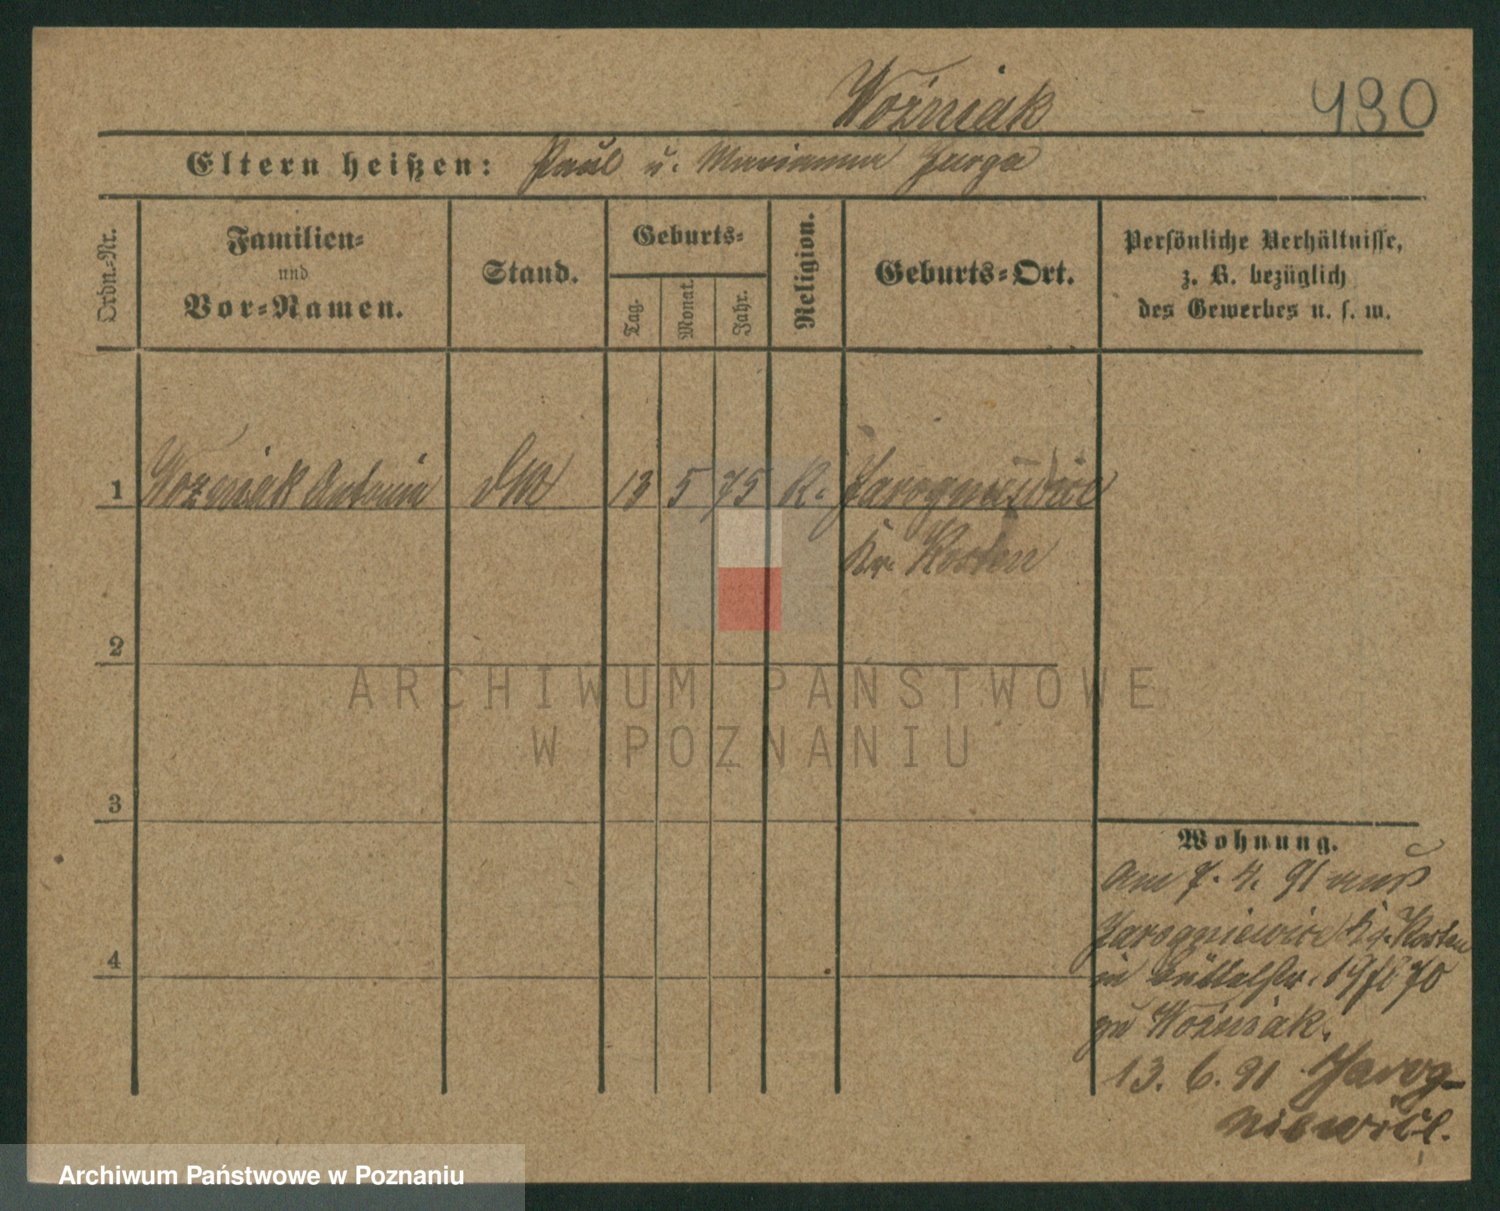 Woźniak
490
Eltern heißen: Paul u. Marianna
Ordn.-Nr.
Familien-
und
Vor-Namen.
Stand.
Geburts-
Tag.
Monat.
Jahr.
Religion.
Geburts-Ort.
Persönliche Verhältnisse,
z. B. bezüglich
des Gewerbes u. s. w.
1 Woźniak Antonin 13 5 75 K. Jarogniewice
Kr. Kosten
2
3
4
Wohnung.
am 7. 4. 91 aus
Jarogniewice Kr. Kosten
in Büttelstr. 19
zu Woźniak.
13. 6. 91 Jarog-
niewice.
ARCHIWUM PAŃSTWOWE
W POZNANIU
Archiwum Państwowe w Poznaniu